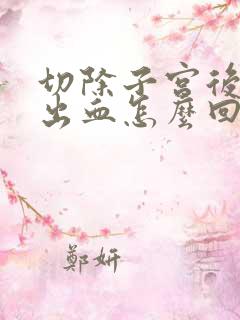 切除子宮後
出血怎麼回
鄭妍